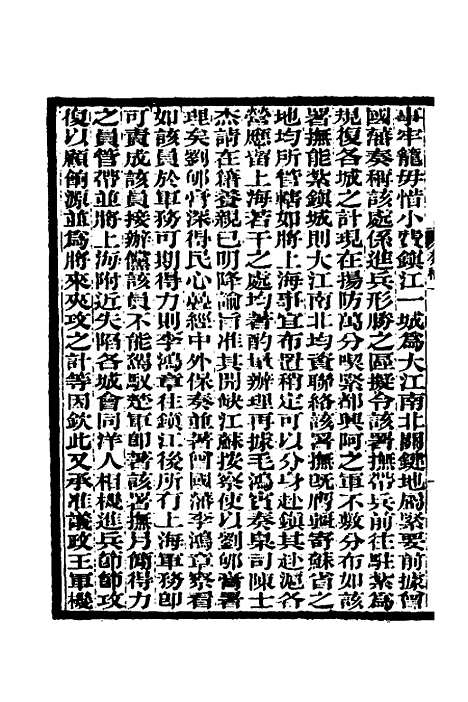 事牢籠毋惜小費鎮江一城爲大江南北關鍵地局緊要前據曾
國藩奏稱該處係進兵形勝之區擬令該署撫帶兵前往駐紮爲
規復各城之計現在揚防萬分喫緊都興阿之軍不敷分布如該
署撫能紮鎮城則大江南北均資聯絡該署撫旣膺疆寄蘇省之
地均所管轄如將上海事宜布置稍定可以分身赴鎮其赴滬各
營應留上海若干之處均著酌量辦理再據毛鴻賓奏臬司陳士
杰請在籍養親已明降諭旨准其開缺江蘇按察使以劉郇膏署
理矣劉郇膏深得民心疊經中外保奏並著曾國藩李鴻章察看
如該員於軍務可期得力則李鴻章往鎮江後所有上海軍務卽
可責成該員接辦儻該員不能駕馭楚軍卽著該署撫另簡得力
之員管帶並將上海附近失陷各城會同洋人相機進兵節節攻
復以顧餉源並爲將來夾攻之計等因欽此又承准議政王軍機